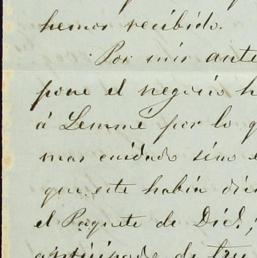 hemos recibido.
Por mis ante
pone el negocio h
á Lemme por lo q
mas cuidado sino e
que este había dic
el Paquete de Dic.;
anticipado de tu